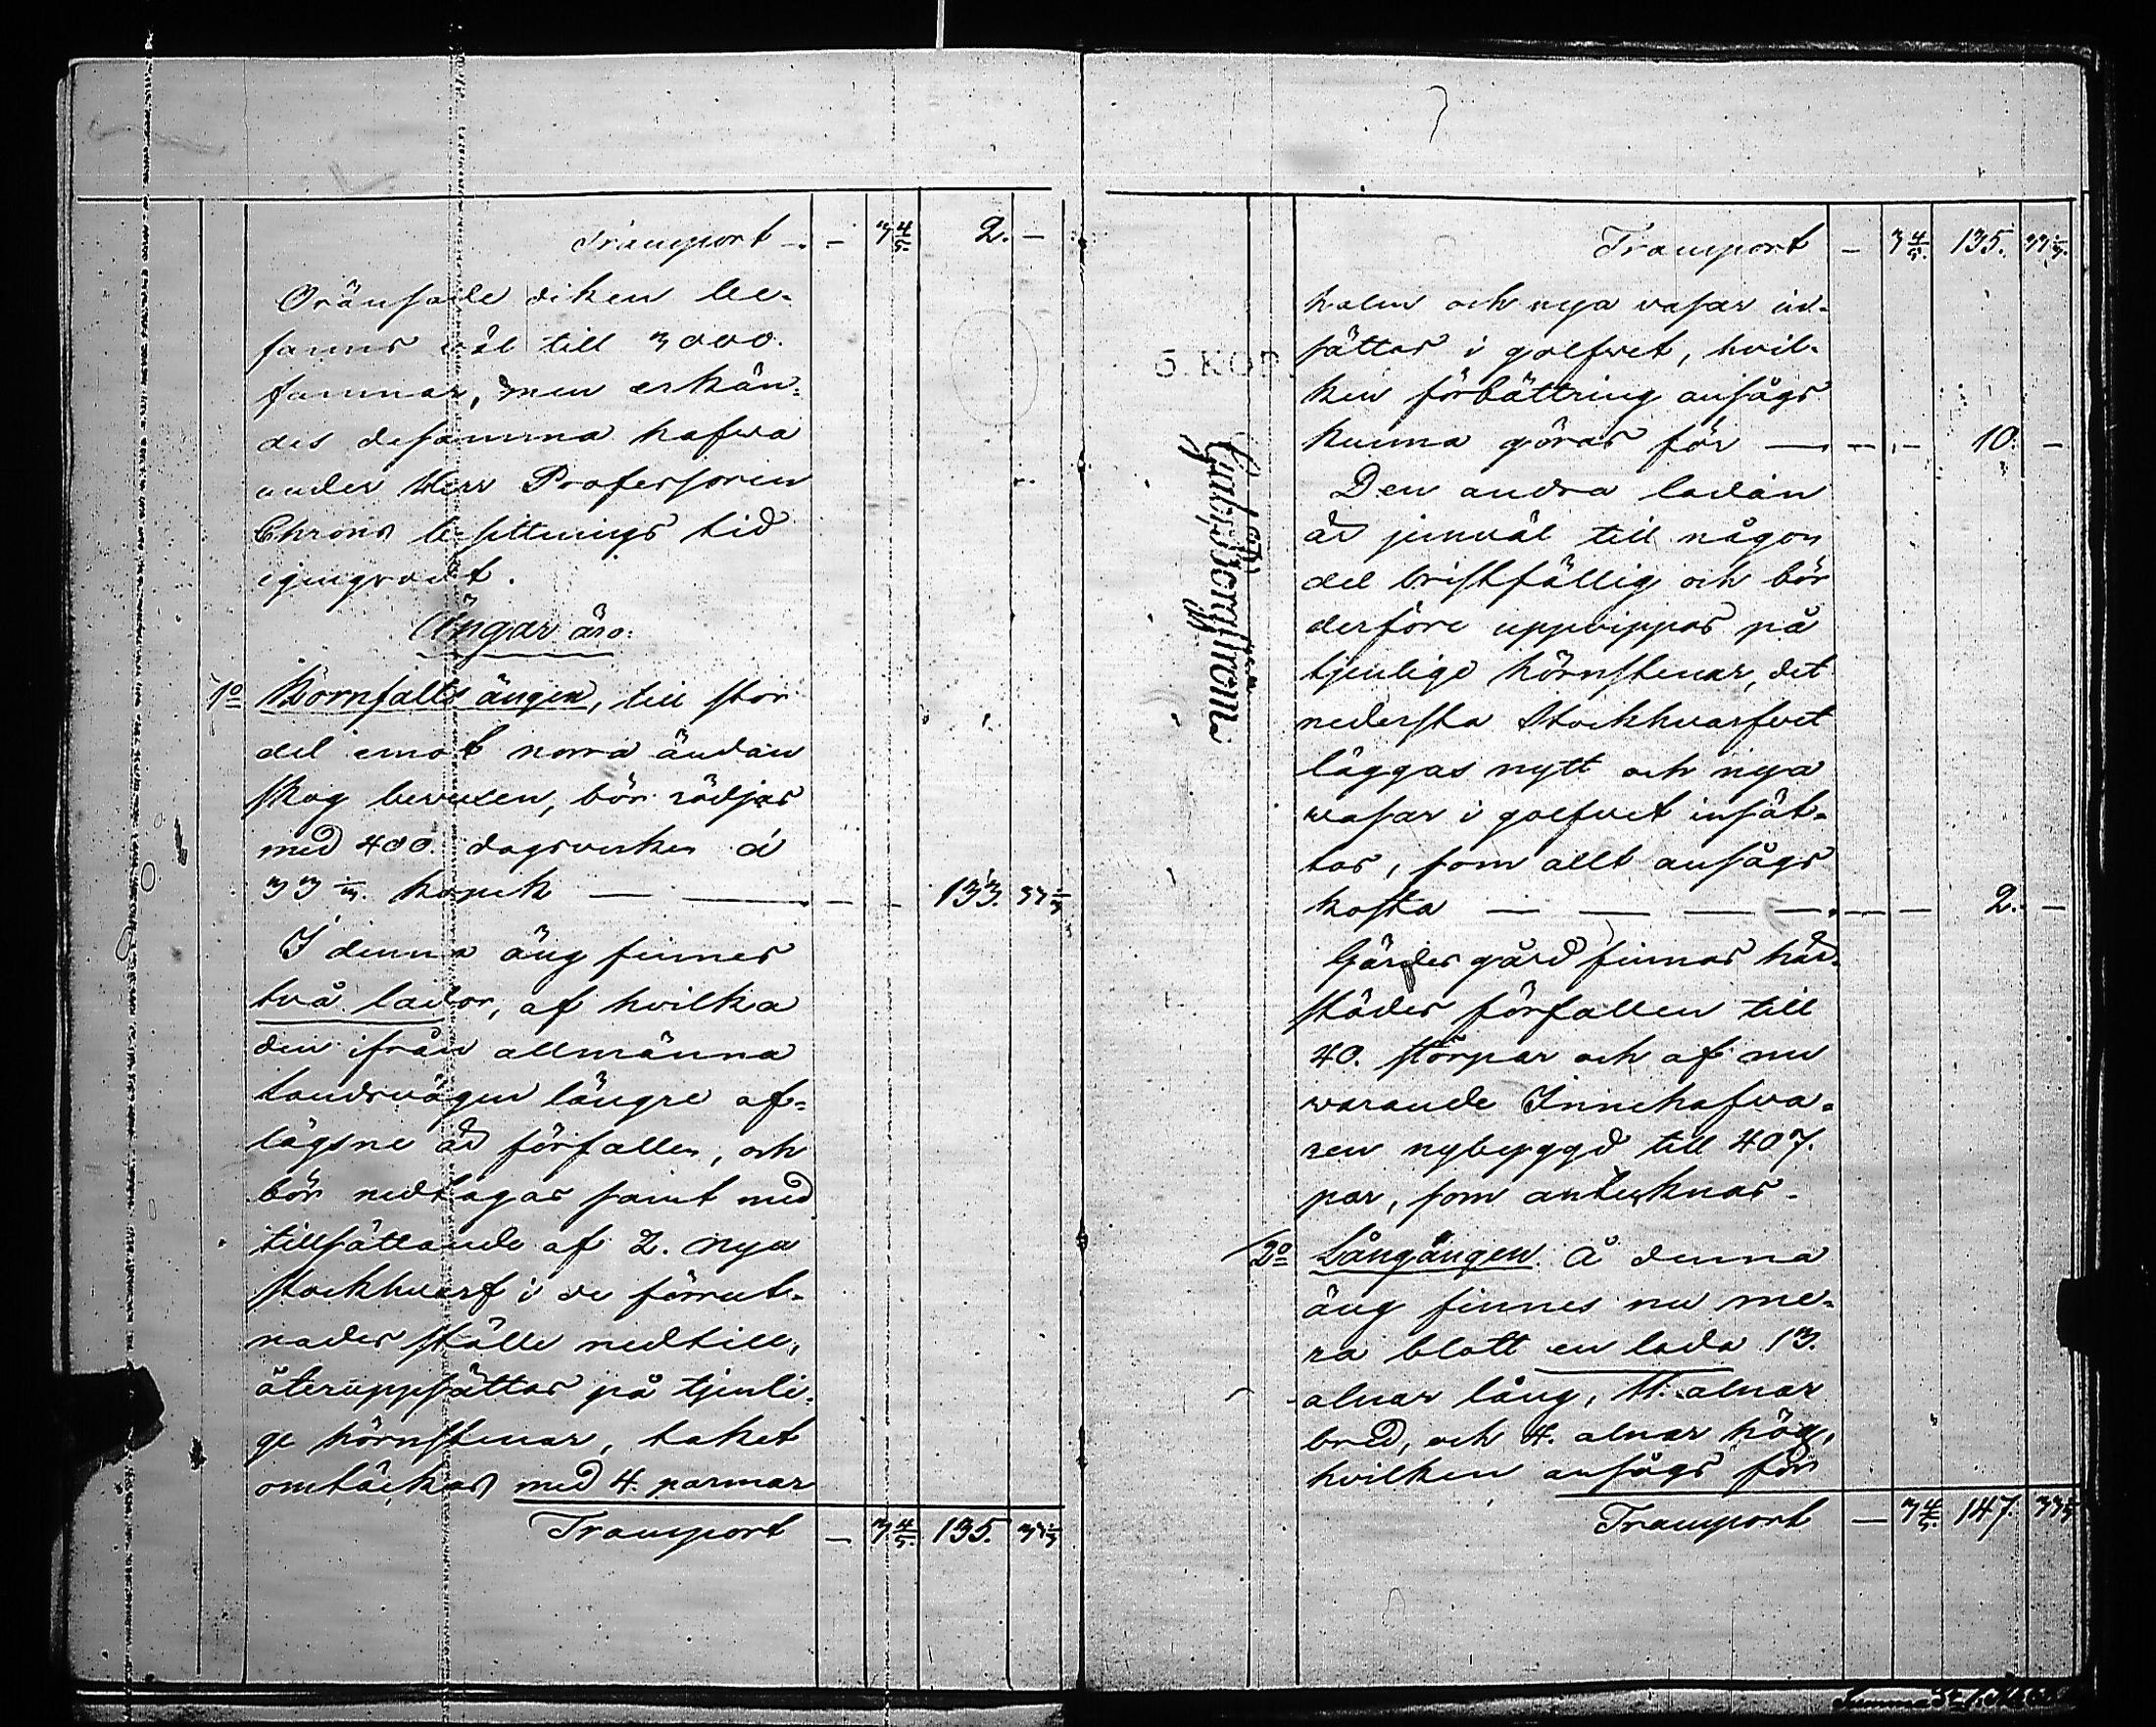 Transport - - 3 4/5. 2. -
Oränsade diken be-
fanns väl till 3000.
famnar, men erkän-
des desamma hafva
under Herr Professoren
Ehrons besittnings tid
igengrodt.
Ängar äro:
1o Björnfalls ängen, till stor
del emot norra ändan
skog bevuxen, bör rödjas
med 400. dagsverken á
33 1/3. kopek — — - - 133. 33 1/3
I denna äng finnes
två lador, af hvilka
den ifrån allmänna
landsvägen längre af-
lägsne är förfallen, och
bör nedtagas samt med
tillsättande af 2. nya
stockhvarf i de förrut-
nades ställe nedtill,
återuppsättas på tjenli-
ge hörnstenar, taket
omtäckas med 4. parmar
Transport - 3 4/5. 135. 33 1/3
Transport - 3 4/5. 135. 33 1/3.
halm och nya vasar in-
sättas i golfvet, hvil-
5. KOP.
ken förbättring ansågs
kunna göras för — - - - 10. -
Den andra ladan
är jemväl till någon
del bristfällig och bör
derföre uppvippas på
tjenlige hörnstenar, det
nedersta stockhvarfvet
läggas nytt och nya
vasar i golfvet insät-
tas, som allt ansågs
kosta — — — — - - - 2. -
Gärdesgård finnas här-
städes förfallen till
40. störpar och af nu
varande Innehafva-
ren nybyggd till 407.
par, som antecknas.
2o Långängen. Å denna
äng finnes nu me-
ra blott en lada 13.
alnar lång, 11. alnar
bred, och 4. alnar hög,
hvilken ansågs för
Transport — 3 4/5. 147. 33 1/3
Summa